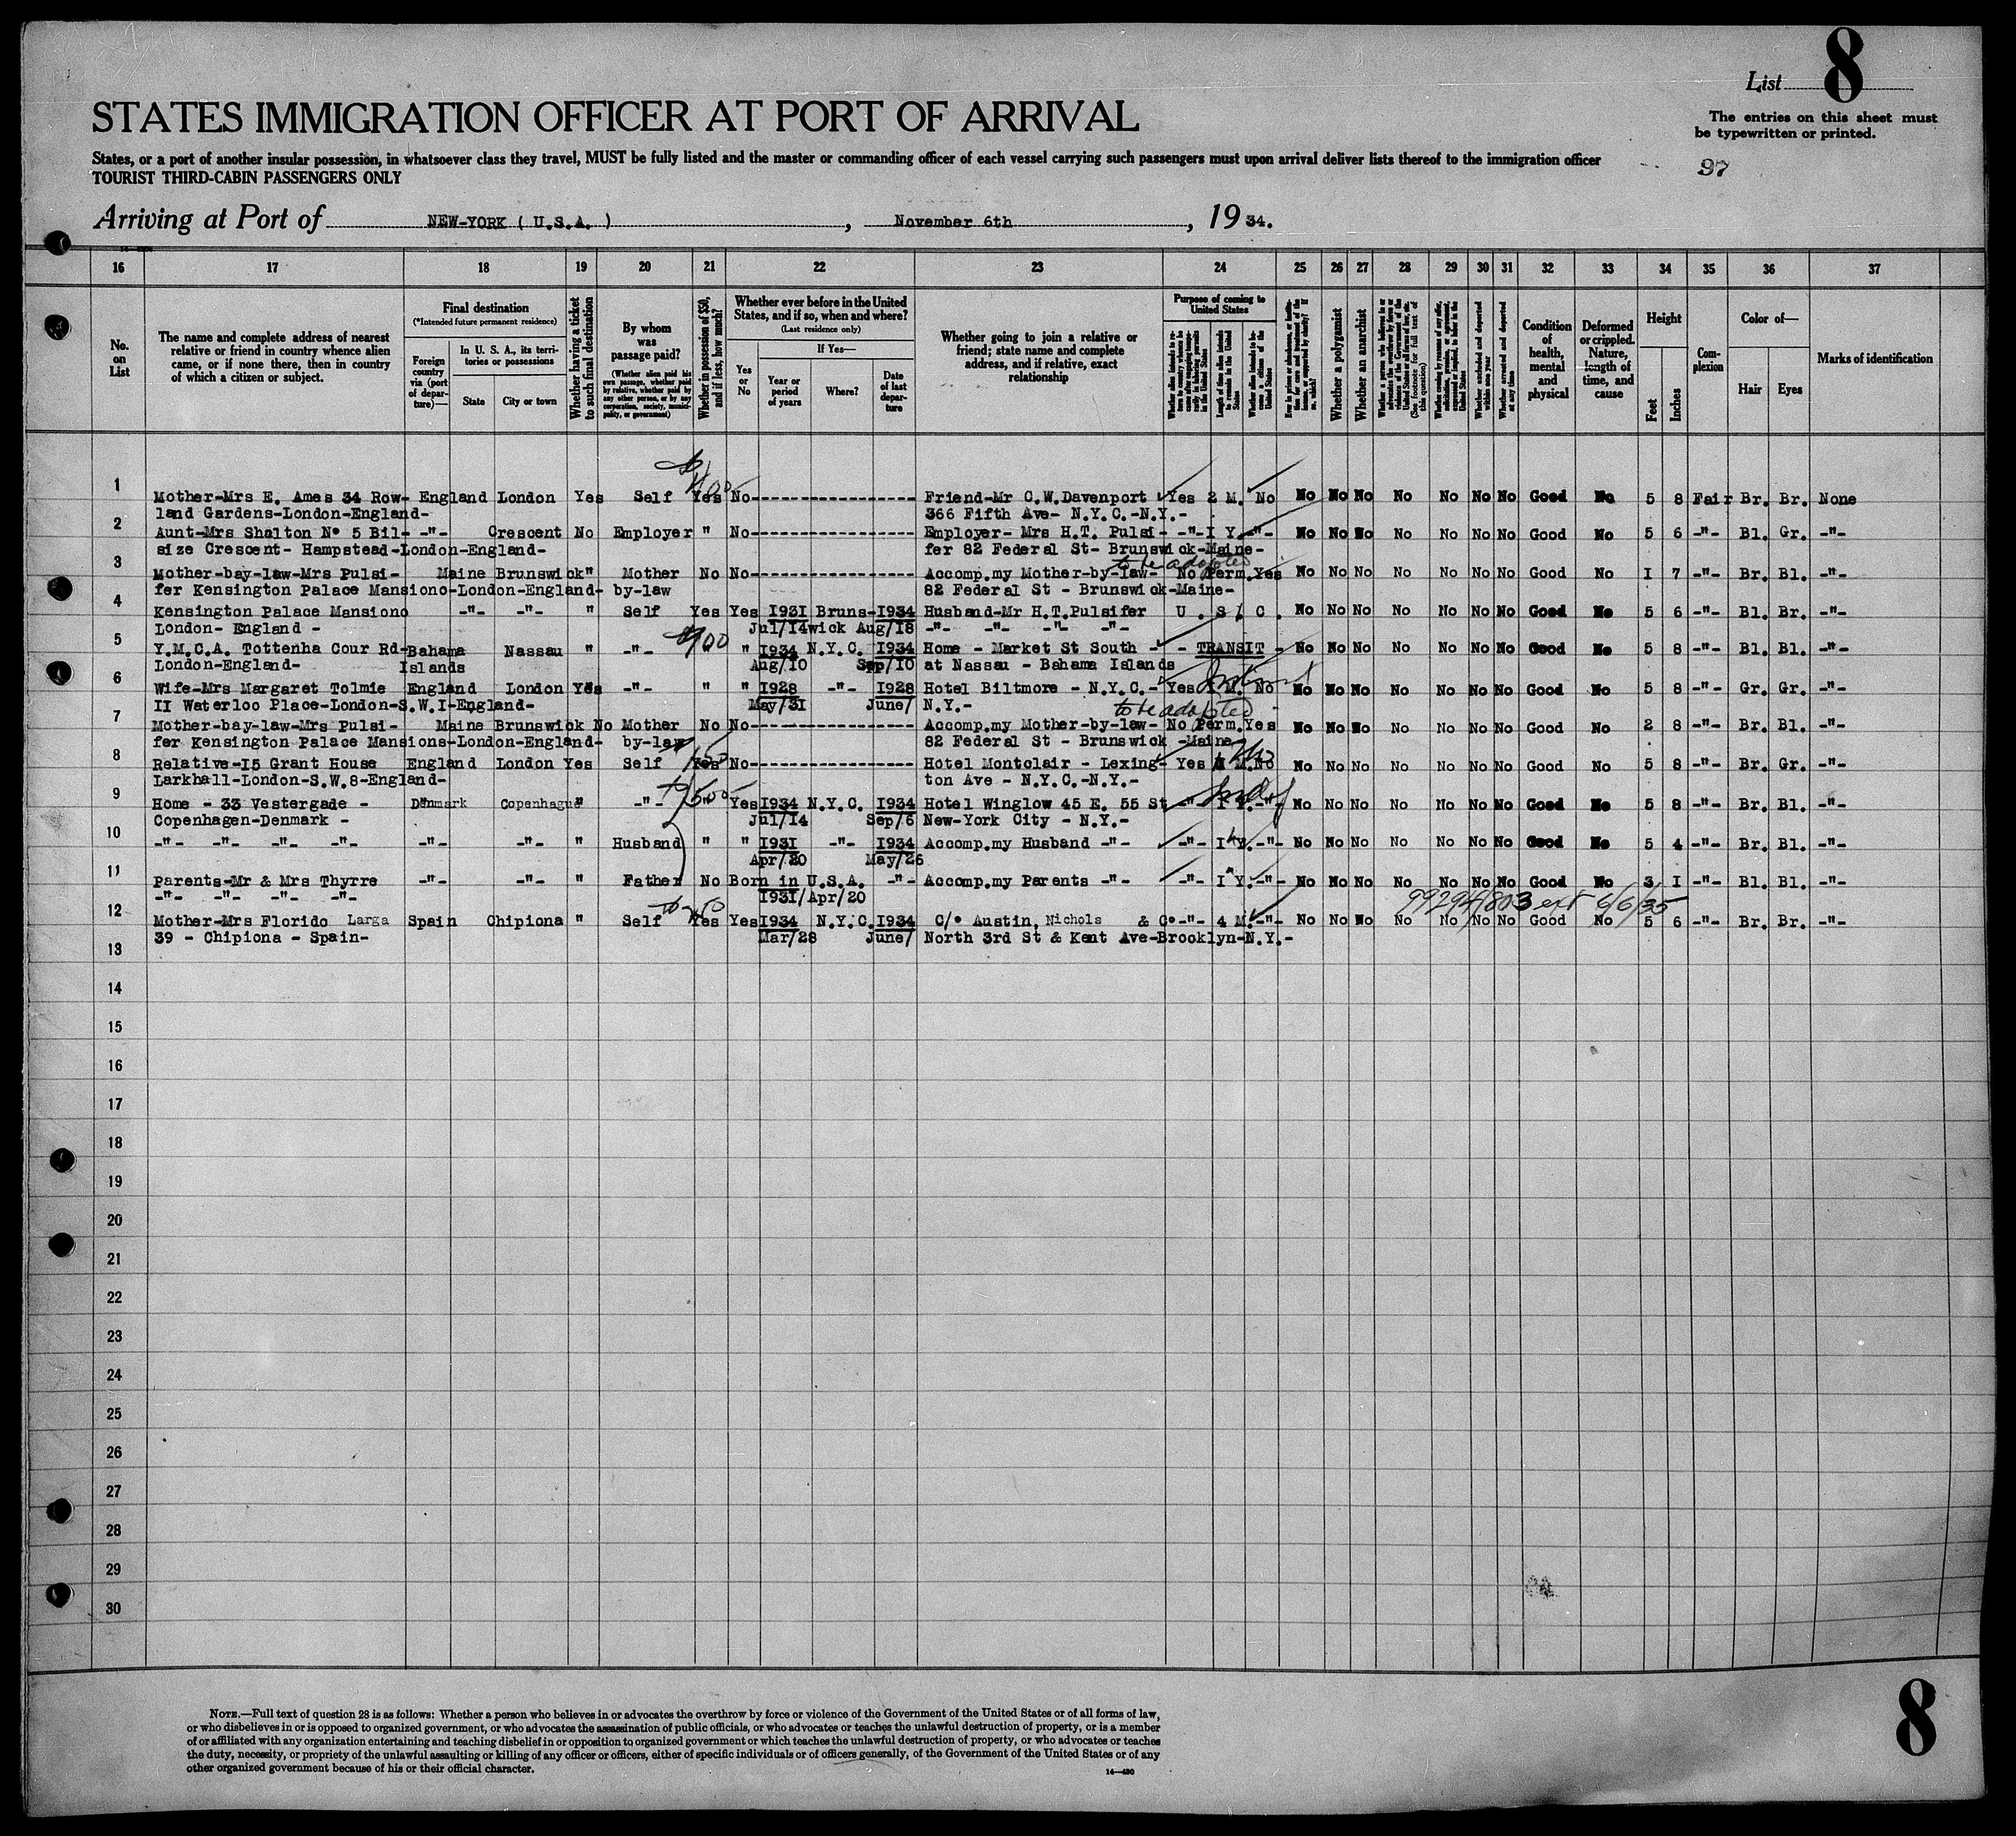 List 8
STATES IMMIGRATION OFFICER AT PORT OF ARRIVAL
The entries on this sheet must
be typewritten or printed.
States, or a port of another insular possession, in whatsoever class they travel, MUST be fully listed and the master or commanding officer of each vessel carrying such passengers must upon arrival deliver lists thereof to the immigration officer
TOURIST THIRD-CABIN PASSENGERS ONLY
37
Arriving at Port of NEW-YORK ( U.S.A. ), November 6th, 19 34.
16 17 18 19 20 21 22 23 24 25 26 27 28 29 30 31 32 33 34 35 36 37
No. on List
The name and complete address of nearest relative or friend in country whence alien came, or if none there, then in country of which a citizen or subject.
Final destination
(*Intended future permanent residence)
Foreign country via (port of departure)—
In U. S. A., its territories or possessions
State
City or town
Whether having a ticket to such final destination
By whom was passage paid?
(Whether alien paid his own passage, whether paid by relative, whether paid by any other person, or by any corporation, society, municipality, or government)
Whether in possession of $50, and if less, how much?
Whether ever before in the United States, and if so, when and where?
(Last residence only)
Yes or No
If Yes—
Year or period of years
Where?
Date of last departure
Whether going to join a relative or friend; state name and complete address, and if relative, exact relationship
Purpose of coming to United States
Length of time alien intends to remain in the United States
Whether alien intends to become a citizen of the United States
Whether a polygamist
Whether an anarchist
Whether excluded and deported within one year
Whether arrested and deported at any time
Condition of health, mental and physical
Deformed or crippled. Nature, length of time, and cause
Height
Feet
Inches
Complexion
Color of—
Hair
Eyes
Marks of identification
1 Mother-Mrs E. Ames 34 Row- England London Yes Self Yes No---------------- Friend-Mr C.W.Davenport Yes 2 M. No No No No No No No No Good No 5 8 Fair Br. Br. None
land Gardens-London-England- 366 Fifth Ave- N.Y.C.-N.Y.-
2 Aunt-Mrs Shalton N° 5 Bil- -"- Crescent No Employer " No---------------- Employer- Mrs H.T. Pulsi- -"- I Y. -"- No No No No No No No Good No 5 6 -"- Bl. Gr. -"-
size Crescent- Hampstead-London-England- fer 82 Federal St- Brunswick-Maine-
to be adopted
3 Mother-bay-law-Mrs Pulsi- Maine Brunswick " Mother No No---------------- Accomp.my Mother-by-law- No Perm. Yes No No No No No No No Good No I 7 -"- Br. Bl. -"-
fer Kensington Palace Mansiono-London-England- by-law 82 Federal St - Brunswick-Maine-
4 Kensington Palace Mansiono -"- -"- " Self Yes Yes 1931 Bruns- 1934 Husband-Mr H.T.Pulsifer U. S. C. No No No No No No No Good No 5 6 -"- Bl. Br. -"-
London- England - Jul/14 wick Aug/18 -"- -"- -"- -"-
5 Y.M.C.A. Tottenha Cour Rd- Bahama Nassau " -"- " " 1934 N.Y.C. 1934 Home - Market St South - - TRANSIT - No No No No No No No Good No 5 8 -"- Bl. Bl. -"-
London-England- Islands Aug/10 Sep/10 at Nassau - Bahama Islands
6 Wife-Mrs Margaret Tolmie England London Yes -"- " " 1928 -"- 1928 Hotel Biltmore - N.Y.C.- Yes I M. No No No No No No No No Good No 5 8 -"- Gr. Gr. -"-
II Waterloo Place-London-S.W.I-England- May/31 June/ N.Y.-
to be adopted
7 Mother-bay-law-Mrs Pulsi- Maine Brunswick No Mother No No---------------- Accomp.my Mother-by-law- No Perm. Yes No No No No No No No Good No 2 8 -"- Br. Bl. -"-
fer Kensington Palace Mansions-London-England- by-law 82 Federal St - Brunswick -Maine-
8 Relative-15 Grant House England London Yes Self Yes No---------------- Hotel Montclair - Lexing- Yes M. No No No No No No No No Good No 5 8 -"- Br. Gr. -"-
Larkhall-London-S.W.8-England- ton Ave - N.Y.C.-N.Y.-
9 Home - 33 Vestergade - Denmark Copenhague " -"- " Yes 1934 N.Y.C. 1934 Hotel Winglow 45 E. 55 St -"- I Y. -"- No No No No No No No Good No 5 8 -"- Br. Bl. -"-
Copenhagen-Denmark - Jul/14 Sep/6 New-York City - N.Y.-
10 -"- -"- -"- -"- -"- -"- " Husband " " 1931 -"- 1934 Accomp.my Husband -"- -"- I Y. -"- No No No No No No No Good No 5 4 -"- Br. Bl. -"-
Apr/20 May/26
11 Parents-Mr & Mrs Thyrre -"- -"- " Father No Born in U.S.A. -"- Accomp.my Parents -"- -"- I Y. -"- No No No No No No No Good No 3 I -"- Bl. Bl. -"-
-"- -"- -"- -"- 1931/Apr/20
12 Mother-Mrs Florido Larga Spain Chipiona " Self Yes Yes 1934 N.Y.C. 1934 C/° Austin, Nichols & C° -"- 4 M. -"- No No No No No No No Good No 5 6 -"- Br. Br. -"-
39 - Chipiona - Spain- Mar/28 June/ North 3rd St & Kent Ave-Brooklyn-N.Y.-
13
14
15
16
17
18
19
20
21
22
23
24
25
26
27
28
29
30
NOTE.—Full text of question 28 is as follows: Whether a person who believes in or advocates the overthrow by force or violence of the Government of the United States or of all forms of law,
or who disbelieves in or is opposed to organized government, or who advocates the assassination of public officials, or who advocates or teaches the unlawful destruction of property, or is a member
of or affiliated with any organization entertaining and teaching disbelief in or opposition to organized government or which teaches the unlawful destruction of property, or who advocates or teaches
the duty, necessity, or propriety of the unlawful assaulting or killing of any officer or officers, either of specific individuals or of officers generally, of the Government of the United States or of any
other organized government because of his or their official character.
14—430
8